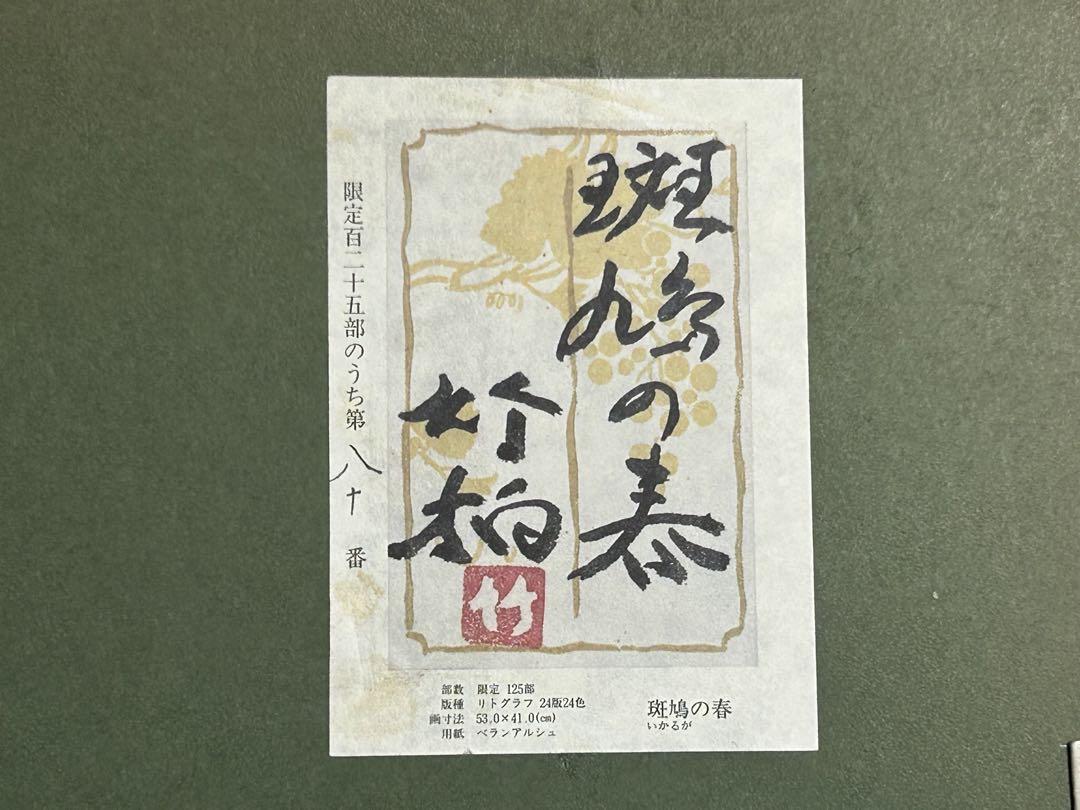 斑鳩の春
竹柏
竹
限定百二十五部のうち第八十番
部数 限定 125部
版種 リトグラフ 24版24色
画寸法 53.0×41.0(cm)
用紙 ベランアルシュ
斑鳩の春
いかるが